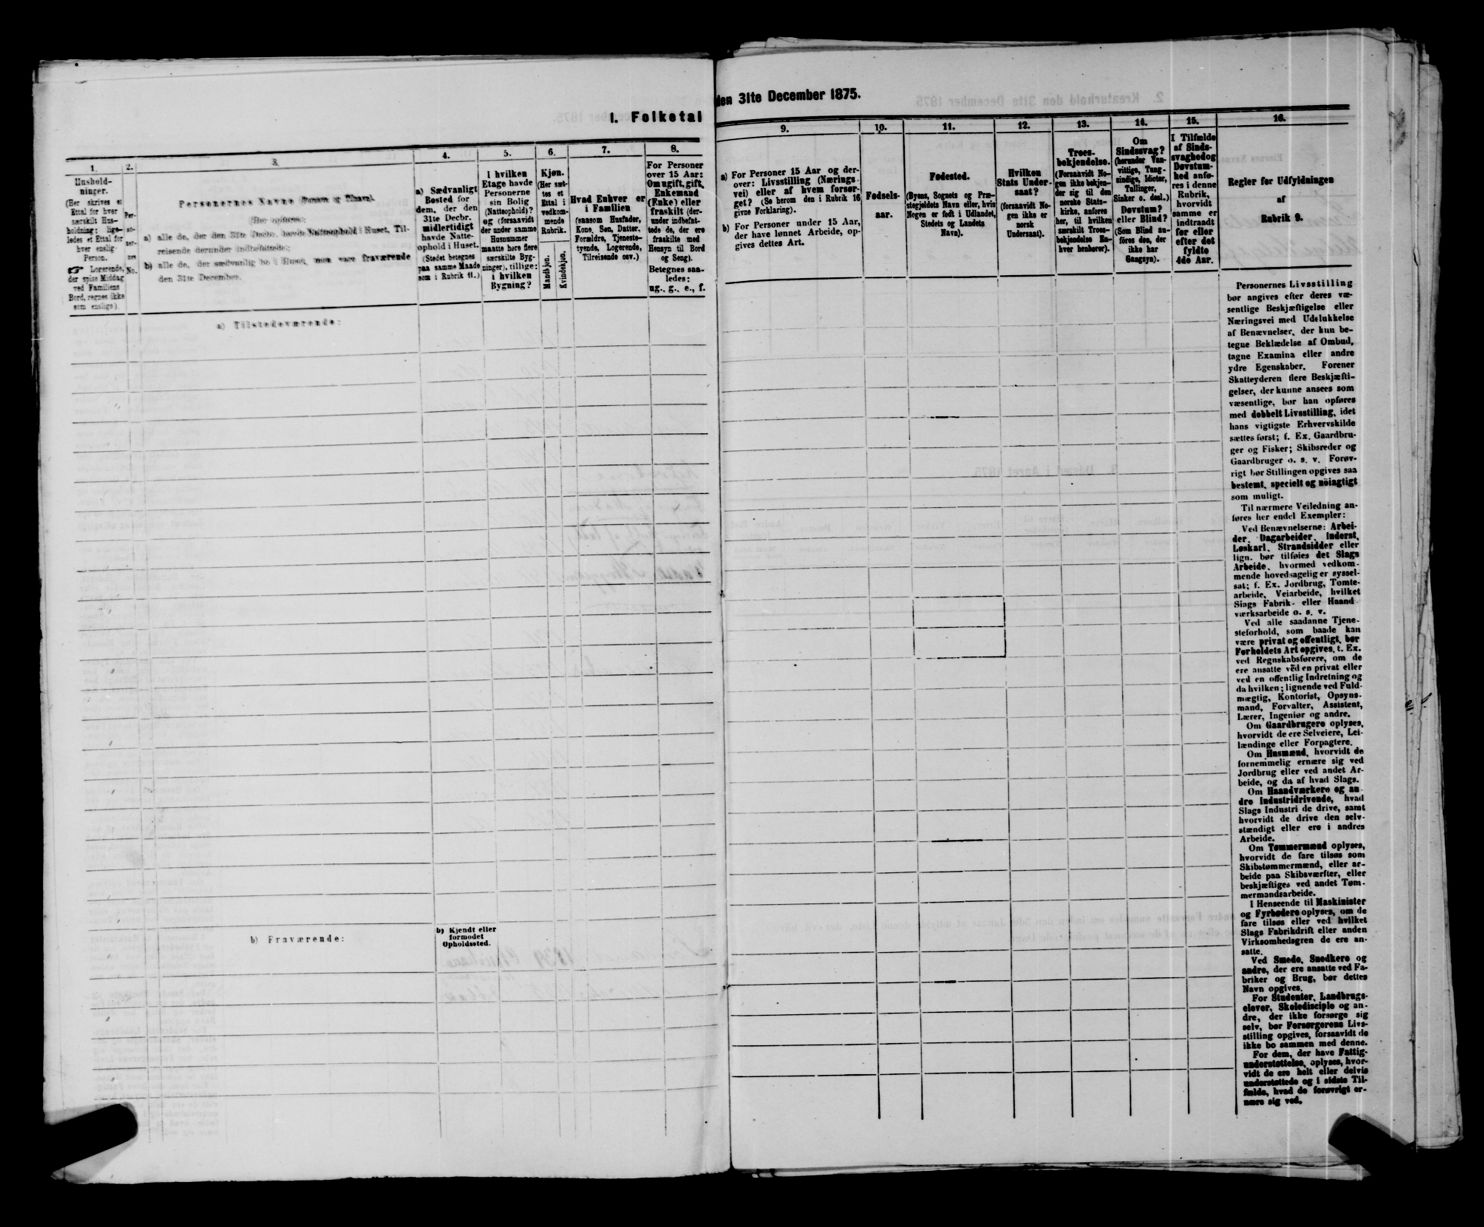 I. Folketal
den 31te December 1875.
1.
Hushold-
ninger.
(Her skrives et
Ettal for hver
særskilt Hus-
holdning; lige-
ledes et Ettal for
hver enslig
Person.
☞ Logerende,
der spise Middag
ved Familiens
Bord, regnes ikke
som enslige).
2.
Per-
No.
3.
Personernes Navne (Fornavn og Tilnavn).
(Her opføres:
a) alle de, der den 31te Decbr. havde Natteophold i Huset, Til-
reisende derunder indbefattede;
b) alle de, der sædvanlig bo i Huset, men vare fraværende
den 31te December.
a) Tilstedeværende:
4.
a) Sædvanligt
Bosted for
dem, der den
31te Decbr.
midlertidigt
havde Natte-
ophold i Huset.
(Stedet betegnes
paa samme Maade
som i Rubrik 11.)
5.
I hvilken
Etage havde
Personerne
sin Bolig
(Natteophold)?
og (forsaavidt
der under samme
Husnummer
maatte høre flere
særskilte Byg-
ninger), tillige:
i hvilken
Bygning?
6.
Kjøn.
(Her sæt-
tes et
Ettal i
vedkom-
mende
Rubrik.
Mandkjøn.
Kvindekjøn.
7.
Hvad Enhver er
i Familien
(saasom Husfader,
Kone, Søn, Datter,
Forældre, Tjeneste-
tyende, Logerende,
Tilreisende osv.)
8.
For Personer
over 15 Aar:
Om ugift, gift,
Enkemand
(Enke) eller
fraskilt (der-
under indbefat-
tede de, der ere
fraskilte med
Hensyn til Bord
og Seng).
Betegnes saa-
ledes:
ug., g., e., f.
b) Fraværende:
b) Kjendt eller
formodet
Opholdssted.
9.
a) For Personer 15 Aar og der-
over: Livsstilling (Nærings-
vei) eller af hvem forsør-
get? (Se herom den i Rubrik 16
givne Forklaring).
b) For Personer under 15 Aar,
der have lønnet Arbeide, op-
gives dettes Art.
10.
Fødsels-
aar.
11.
Fødested.
(Byens, Sognets og Præ-
stegjeldets Navn eller, hvis
Nogen er født i Udlandet,
Stedets og Landets
Navn).
12.
Hvilken
Stats Under-
saat?
(forsaavidt No-
gen ikke er
norsk
Undersaat).
13.
Troes-
bekjendelse.
(Forsaavidt No-
gen ikke bekjen-
der sig til den
norske Stats-
kirke, anføres
her, til hvilken
særskilt Troes-
bekjendelse En-
hver henhører).
14.
Om
Sindssvag?
(herunder Van-
vittige, Tung-
sindige, Idioter,
Tullinger,
Sinker o. desl.)
Døvstum?
eller Blind?
(Som Blind an-
føres den, der
ikke har
Gangsyn).
15.
I Tilfælde
af Sinds-
svaghed og
Døvstum-
hed anfø-
res i denne
Rubrik,
hvorvidt
samme er
indtraadt
før eller
efter det
fyldte
4de Aar.
16.
Regler for Udfyldningen
af
Rubrik 9.
Personernes Livsstilling
bør angives efter deres væ-
sentlige Beskjæftigelse eller
Næringsvei med Udelukkelse
af Benævnelser, der kun be-
tegne Beklædelse af Ombud,
tagne Examina eller andre
ydre Egenskaber. Forener
Skatteyderen flere Beskjæfti-
gelser, der kunne ansees som
væsentlige, bør han opføres
med dobbelt Livsstilling, idet
hans vigtigste Erhvervskilde
sættes først; f. Ex. Gaardbru-
ger og Fisker; Skibsreder og
Gaardbruger o. s. v. Forøv-
rigt bør Stillingen opgives saa
bestemt, specielt og nøiagtigt
som muligt.
Til nærmere Veiledning an-
føres her endel Exempler:
Ved Benævnelserne: Arbei-
der, Dagarbeider, Inderst,
Løskarl, Strandsidder eller
lign. bør tilføies det Slags
Arbeide, hvormed vedkom-
mende hovedsagelig er syssel-
sat; f. Ex. Jordbrug, Tomte-
arbeide, Veiarbeide, hvilket
Slags Fabrik- eller Haand-
værksarbeide o. s. v.
Ved alle saadanne Tjene-
steforhold, som baade kan
være privat og offentligt, bør
Forholdets Art opgives, t. Ex.
ved Regnskabsførere, om de
ere ansatte ved en privat eller
ved en offentlig Indretning og
da hvilken; lignende ved Fuld-
mægtig, Kontorist, Opsyns-
mand, Forvalter, Assistent,
Lærer, Ingeniør og andre.
Om Gaardbrugere oplyses,
hvorvidt de ere Selveiere, Lei-
lændinge eller Forpagtere.
Om Husmænd, hvorvidt de
fornemmelig ernære sig ved
Jordbrug eller ved andet Ar-
beide, og da af hvad Slags.
Om Haandværkere og an-
dre Industridrivende, hvad
Slags Industri de drive, samt
hvorvidt de drive den selv-
stændigt eller ere i andres
Arbeide.
Om Tømmermænd oplyses,
hvorvidt de fare tilsøs som
Skibstømmermænd, eller ar-
beide paa Skibsværfter, eller
beskjæftiges ved andet Tøm-
mermandsarbeide.
I Henseende til Maskinister
og Fyrbødere oplyses, om de
fare tilsøs eller ved hvilket
Slags Fabrikdrift eller anden
Virksomhedsgren de ere an-
satte.
Ved Smede, Snedkere og
andre, der ere ansatte ved Fa-
briker og Brug, bør dettes
Navn opgives.
For Studenter, Landbrugs-
elever, Skoledisciple og an-
dre, der ikke forsørge sig
selv, bør Forsørgerens Livs-
stilling opgives, forsaavidt de
ikke bo sammen med denne.
For dem, der have Fattig-
understøttelse, oplyses, hvor-
vidt de ere helt eller delvis
understøttede og i sidste Til-
fælde, hvad de forøvrigt er-
nære sig ved.